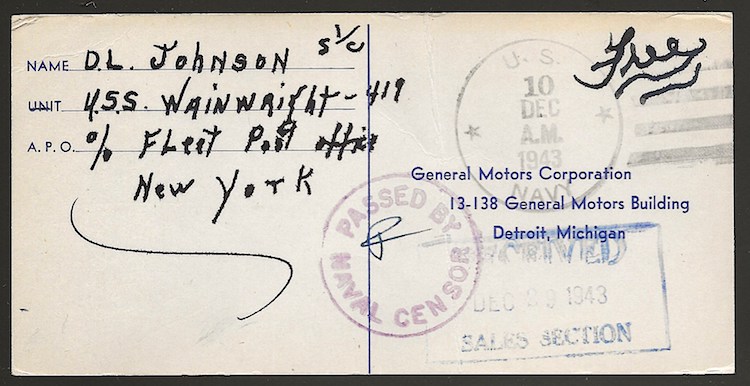 NAME D.L. Johnson S 1/c
UNIT U.S.S. Wainwright - 419
A.P.O. % Fleet Post office
New York
Free
U.S.
10
DEC
A.M.
1943
NAVY
General Motors Corporation
13-138 General Motors Building
Detroit, Michigan
PASSED BY
NAVAL CENSOR
RECEIVED
DEC 29 1943
SALES SECTION